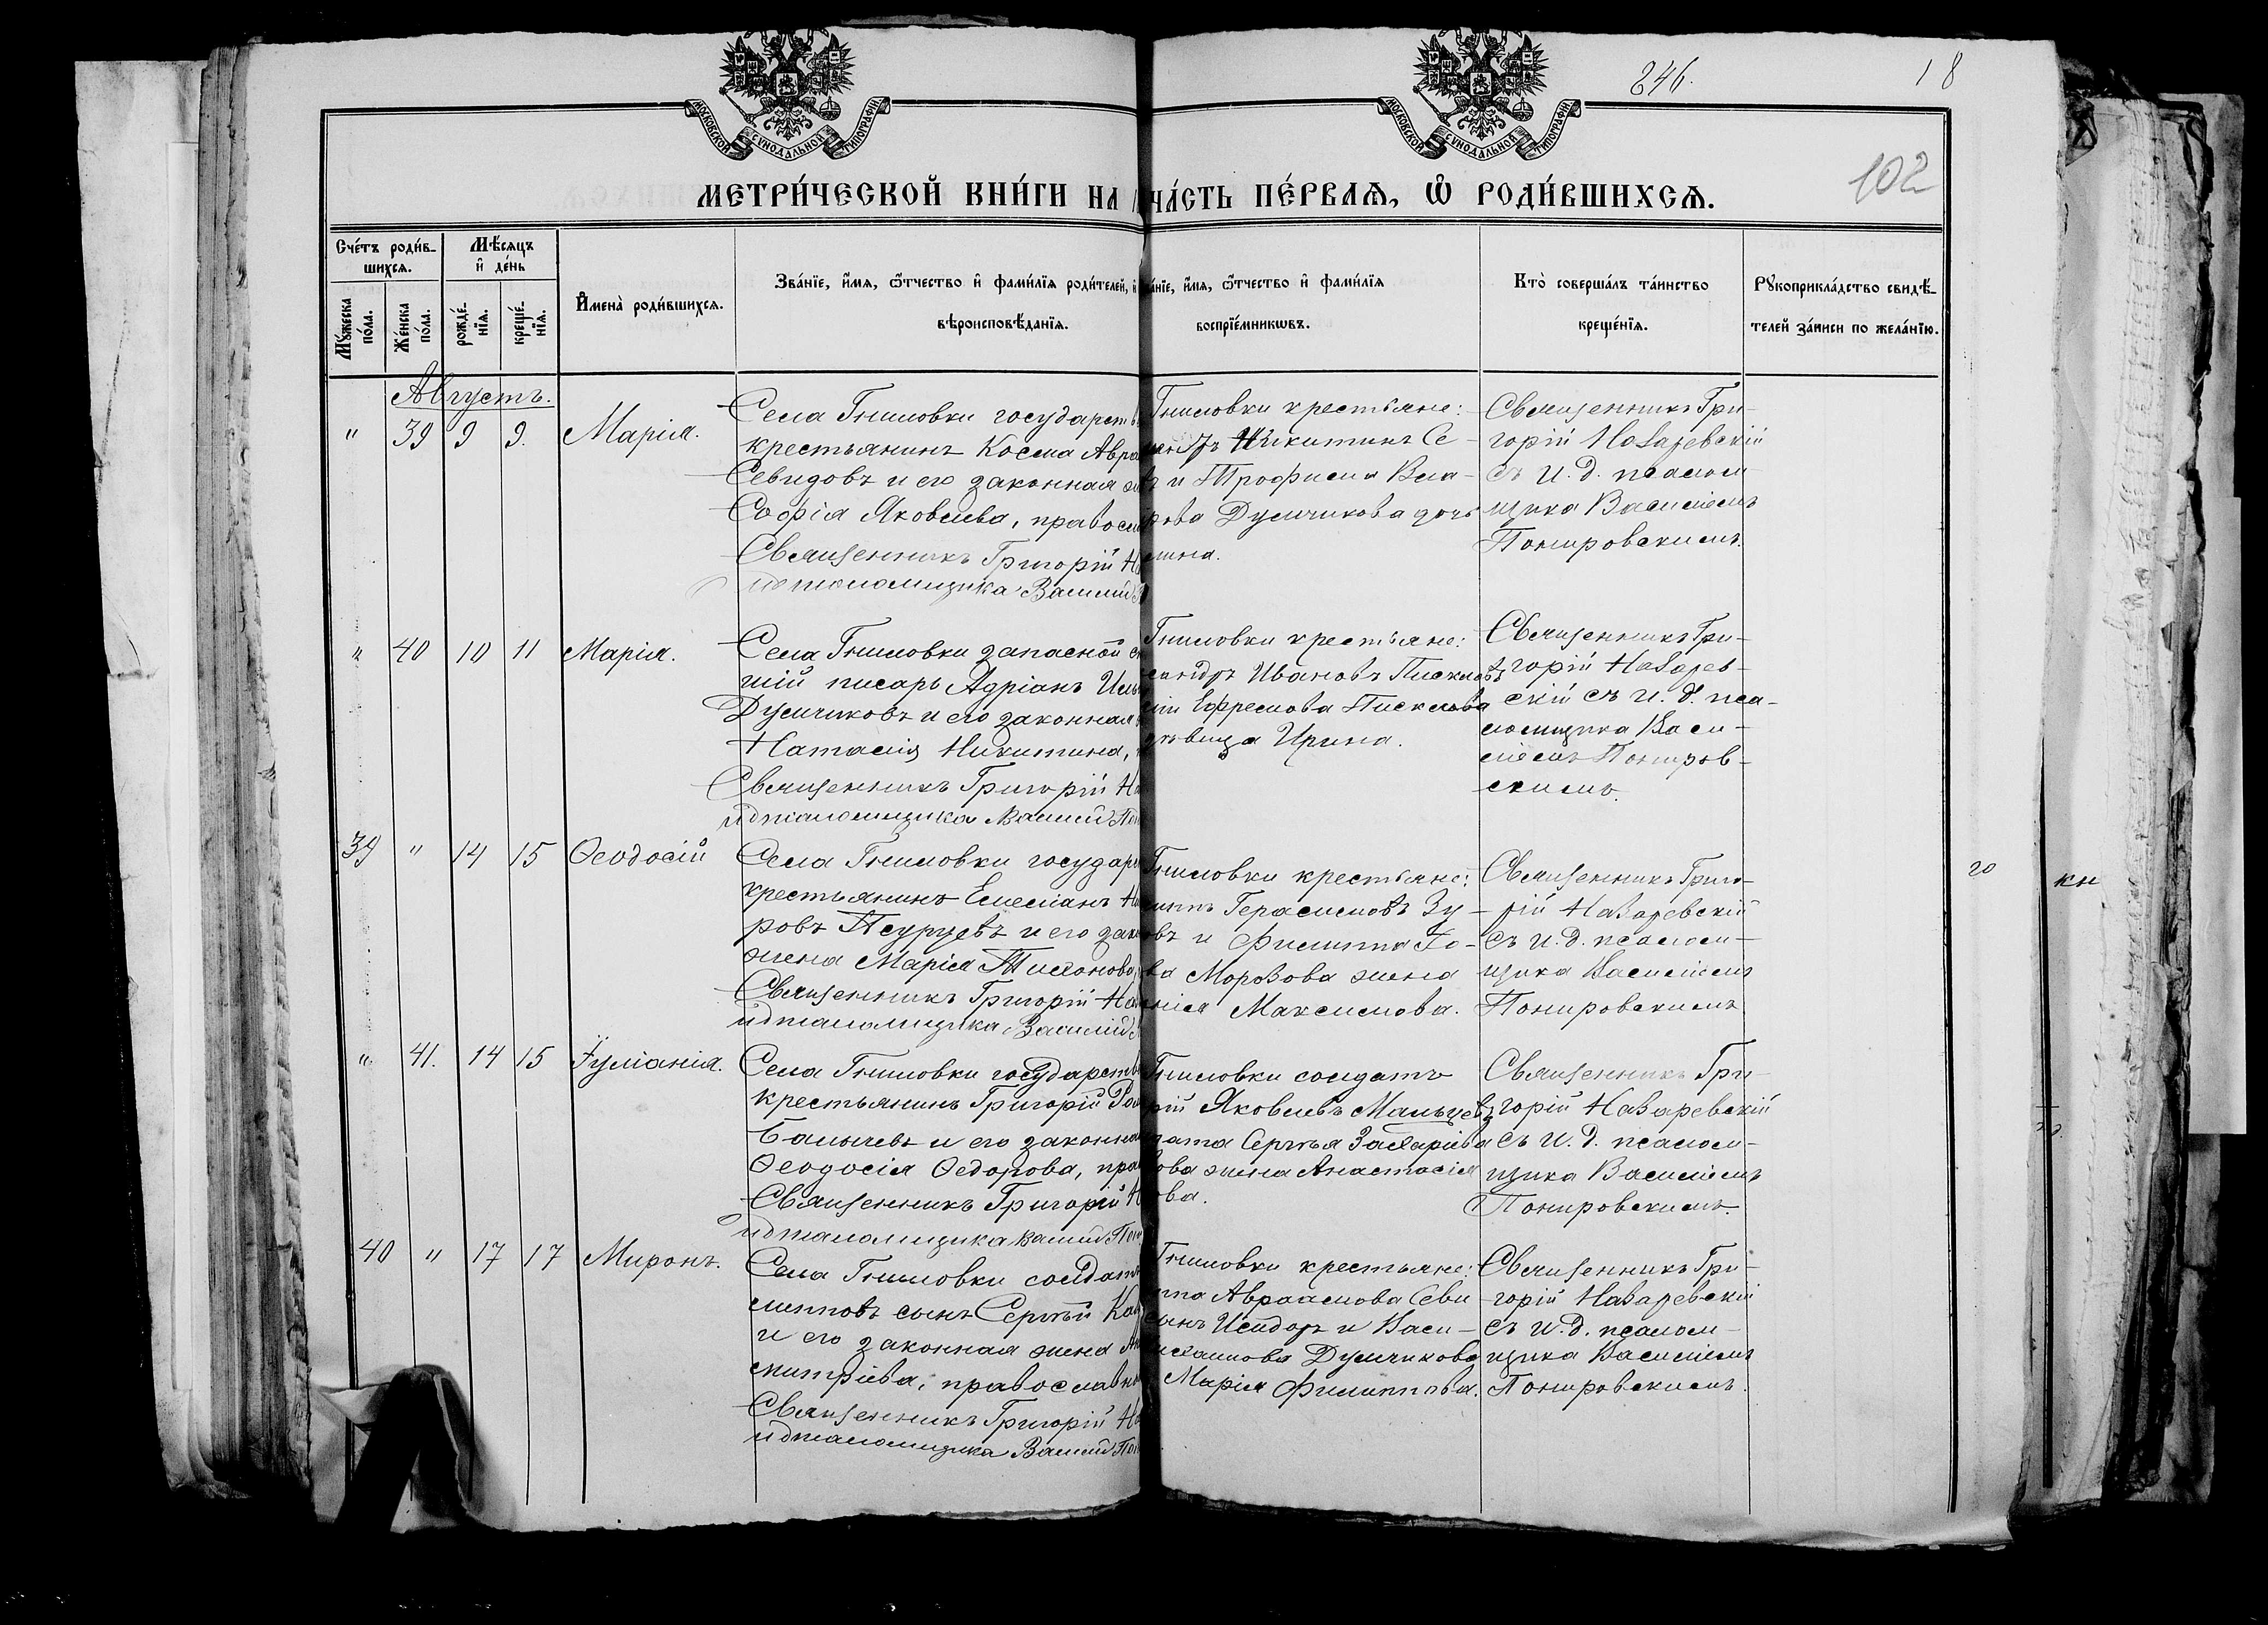 246.
18
102
МОСКОВСКОЙ СУНОДАЛЬНОЙ ТИПОГРАФІИ
МОСКОВСКОЙ СУНОДАЛЬНОЙ ТИПОГРАФІИ
МЕТРИ́ЧЕСКОЙ КНИ́ГИ НА
ЧА́СТЬ ПЕ́РВАѦ, Ѿ РОДИ́ВШИХСѦ.
Сче́тъ роди́в-
шихсѧ.
Мѣ́сѧцъ
и҆ де́нь
Мꙋ́жеска
по́ла.
Же́нска
по́ла.
рожде́-
нїѧ.
креще́-
нїѧ.
И҆мена̀ роди́вшихсѧ.
Зва́нїе, и҆́мѧ, ѻ҆́тчество и҆ фами́лїѧ роди́телей, и҆
вѣроисповѣ́данїѧ.
а́нїе, и҆́мѧ, ѻ҆́тчество и҆ фами́лїѧ
воспрїе́мникѡвъ.
Кто̀ соверша́лъ та́инство
креще́нїѧ.
Рꙋкоприкла́дство свидѣ́-
телей за́писи по жела́нїю.
Августъ.
" 39 9 9. Марія.
Села Гниловки государств
крестьянинъ Косма Авра
Севидовъ и его законная
Софія Яковлева, правосл
Священникъ Григорій Н
и д псаломщика Василій
Гниловки крестьяне:
Никитинъ Се-
и Трофима Вла-
рова Думчикова дочь
лина.
Священникъ Гри-
горій Назаревскій
съ и. д. псалом
щика Василіемъ
Понировскимъ.
" 40 10 11 Марія.
Села Гниловки запасной
шій писарь Адріанъ Иль
Думчиковъ и его законная
Наталія Никитина,
Священникъ Григорій На
и д псаломщика Василій Пон
Гниловки крестьяне:
сандръ Ивановъ Писклов
Ефремова Писклова
дѣвица Ирина.
Священникъ Гри-
горій Назарев-
скій съ и. д. пса-
ломщика Васи-
ліемъ Пониров-
скимъ.
39 " 14 15 Ѳеодосій
Села Гниловки государ
крестьянинъ Емеліанъ
ровъ Псурцевъ и его зак
жена Марія Тихонова,
Священникъ Григорій На
и д псаломщика Василій
Гниловки крестьяне:
липпъ Герасимовъ Зу-
овъ и Филиппа Го-
ва Морозова жена
Максимова.
Священникъ Григо-
рій Назаревскій
съ и. д. псалом-
щика Василіемъ
Понировскимъ.
" 41. 14 15 Іуліанія.
Села Гниловки государств
крестьянинъ Григорій Ром
Балычевъ и его законна
Ѳеодосія Ѳедорова, пра
Священникъ Григорій Н
и д псаломщика Василій Пон
Гниловки солдатъ
рій Яковлевъ Мальцевъ
дата Сергѣя Захаріева
ова жена Анастасія
ова.
Священникъ Гри-
горій Назаревскій
съ и. д. псалом-
щика Василіемъ
Понировскимъ.
40 " 17 17 Миронъ.
Села Гниловки солдат
липповъ сынъ Сергѣй
и его законная жена
митріева, православн
Священникъ Григорій На
и д псаломщика Василій Пон
Гниловки крестьяне:
Авраамова Севи
сынъ Исидоръ и Васи-
ихаилова Думчикова
Марія Филиппова.
Священникъ Гри-
горій Назаревскій
съ и. д. псалом-
щика Василіемъ
Понировскимъ.
го
кн